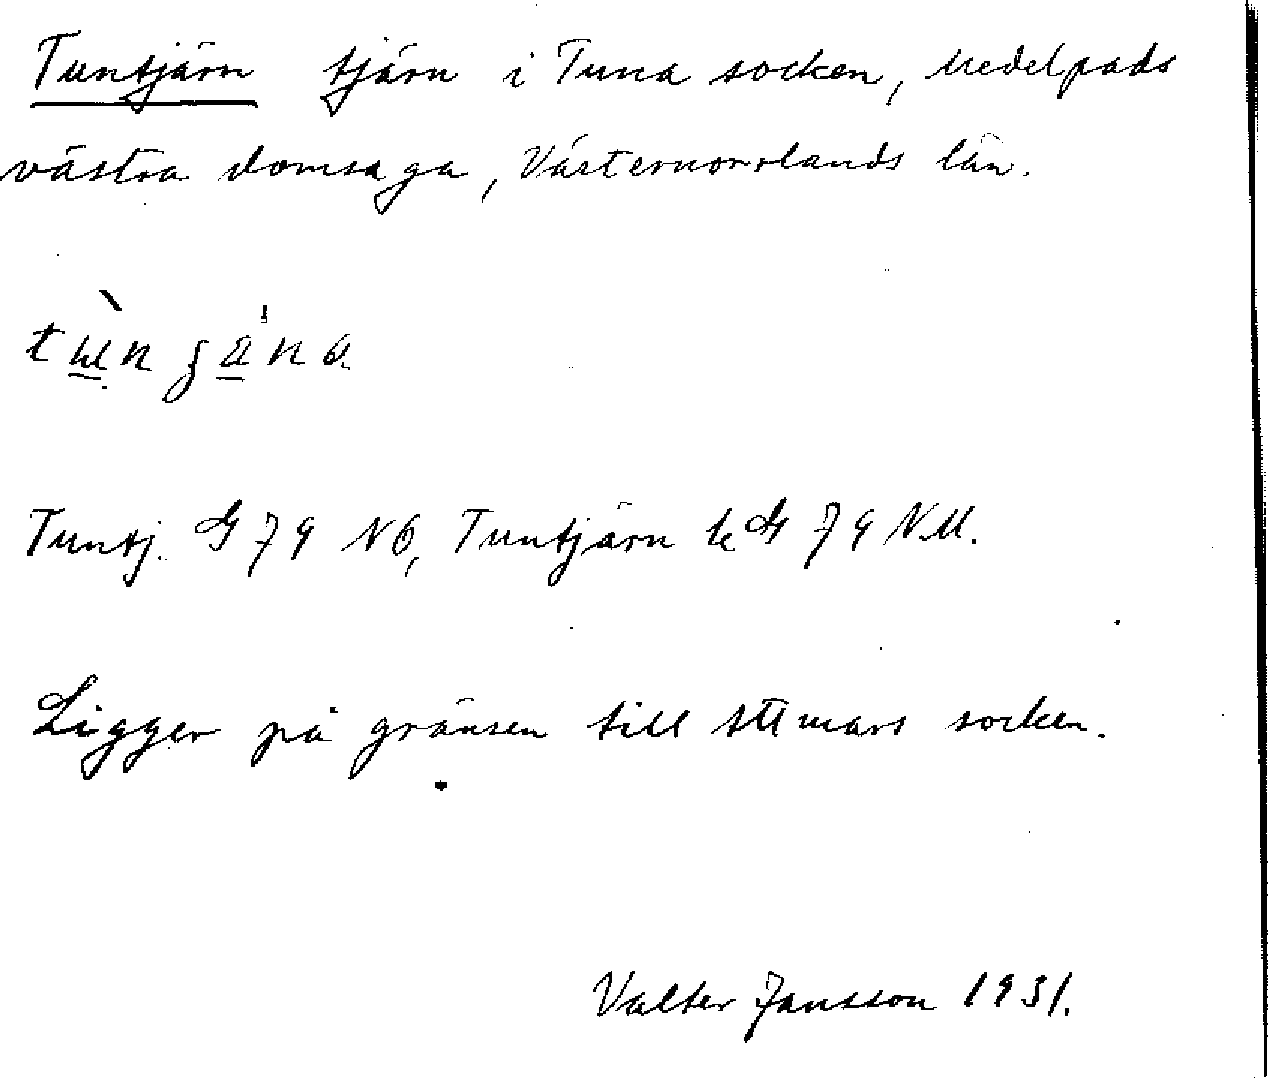 Tuntjärn tjärn i Tuna socken, Medelpads
västra domsaga, Västernorrlands län.
Tuntj. G 79 NÖ, Tuntjärn k G 79 N.M.
Ligger på gränsen till Attmars socken.
Valter Jansson 1931.